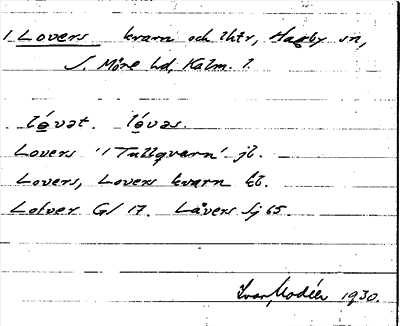 1 Lovers kvarn och lhtr, Hagby sn,
S. Möre hd, Kalm. l.
lóvət. lóvəs.
Lovers "Tullqvarn" jb.
Lovers, Lovers kvarn kb.
Lotver Gl 17. Låvers Sj 65.
Ivar Modéer 1930.